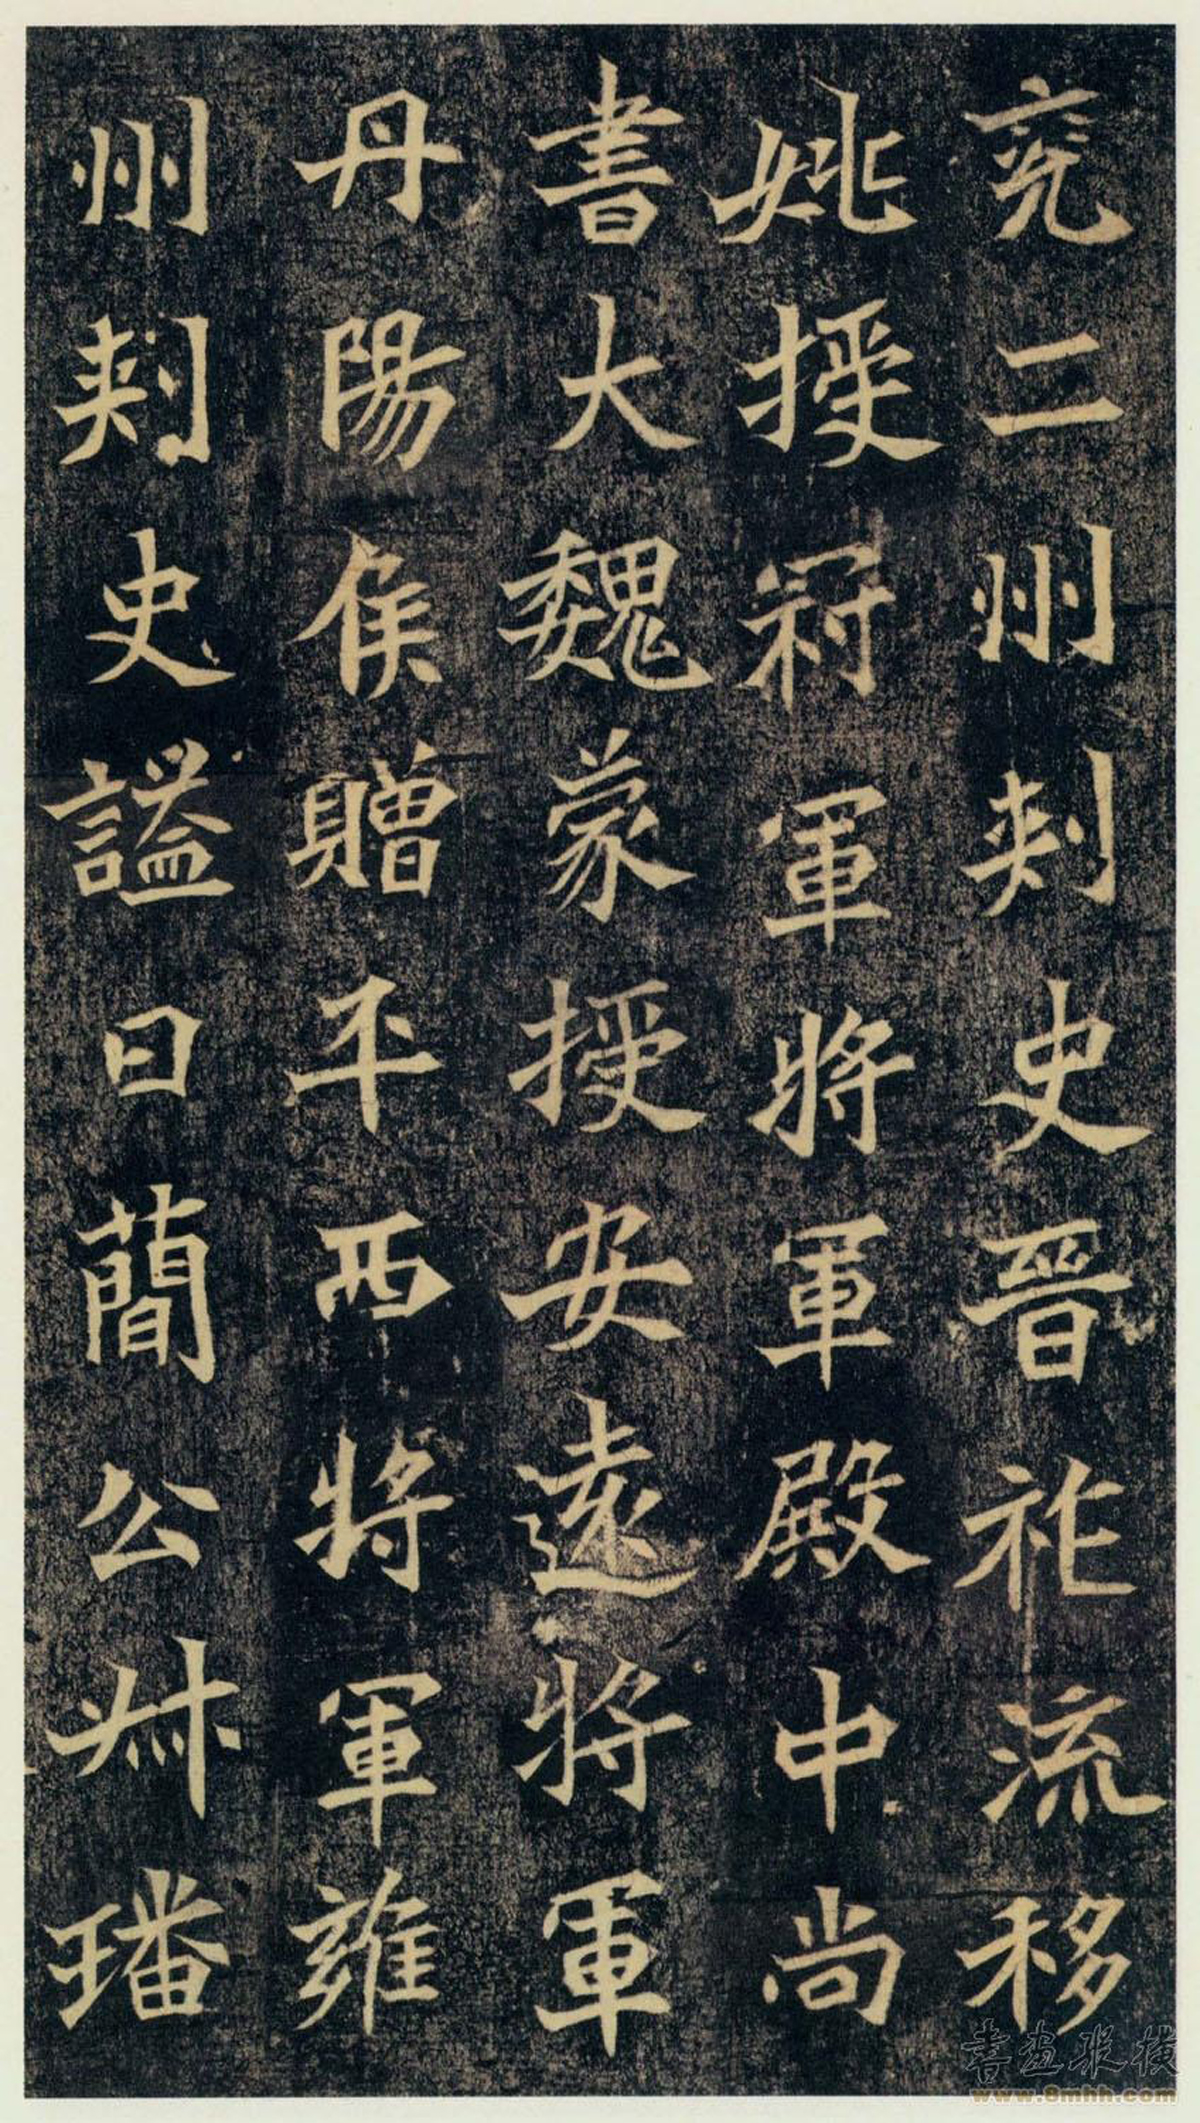 兖二州刾史晉祚流移
姚授冠軍將軍殿中尚
書大魏蒙授安遠將軍
丹陽侯贈平西將軍雍
州刾史謚曰蕳公叔璠
書畫縱橫
www.8mhh.com